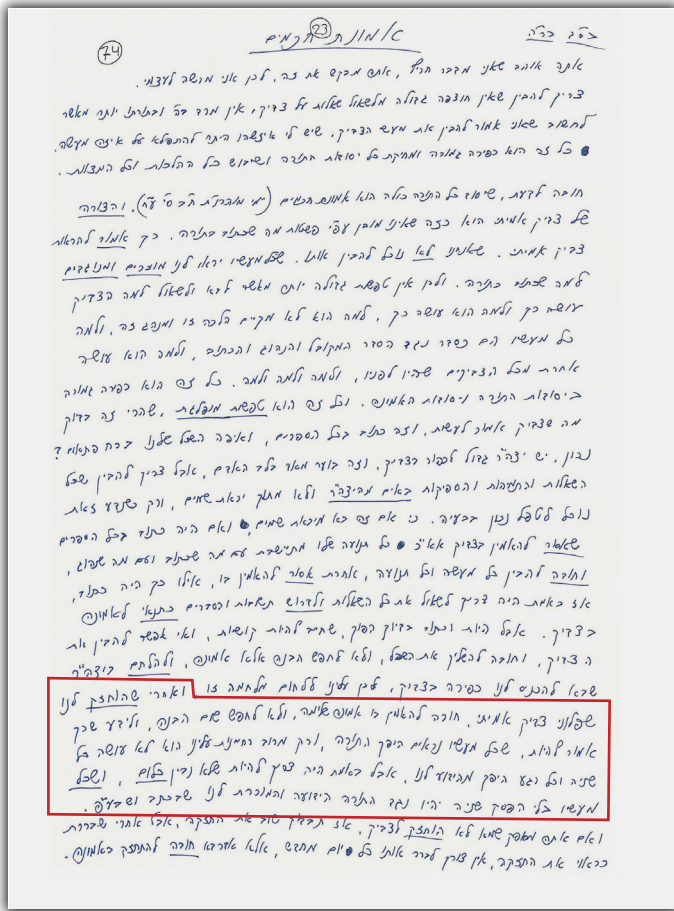 בס"ד בר"ה
23
אמונת חכמים
74
אתה אוהב שאני מדבר חריף, אתה מבקש את זה, לכן אני מרשה לעצמי.
צריך להבין שאין חוצפה גדולה מלשאול שאלות על צדיק, אין מרד בה' ובתורתו יותר מאשר
לחשוב שאני אמור להבין את מעשי הצדיק, שיש לי איזשהו היתר להתפלא על איזה מעשה.
כל זה הוא כפירה גמורה ומחיקת כל יסודות התורה ושיבוש כל ההלכות וכל המצוות.
חובה לדעת, שיסוד כל התורה כולה הוא אמונת חכמים (ימי מוהרנ"ת ח"ב סי' ע"ח). והצורה
של צדיק אמיתי הוא כזה שאינו מובן עפ"י פשטות מה שכתוב בתורה. כך אמור להראות
צדיק אמיתי. שאנחנו לא נוכל להבין אותו. שכל מעשיו יראו לנו מוזרים ומנוגדים
למה שכתוב בתורה. ולכן אין טפשות גדולה יותר מאשר לבא ולשאול למה הצדיק
עושה כך ולמה הוא עושה כך, למה הוא לא מקיים הלכה זו ומנהג זה, ולמה
כל מעשיו הם כסדר נגד הסדר המקובל והנהוג והכתוב, ולמה הוא עושה
אחרת מכל הצדיקים שהיו לפניו, ולמה ולמה ולמה. כל זה הוא כפירה גמורה
ביסודות התורה ויסודות האמונה. וכל זה הוא טפשות מופלגת, שהרי זה בדיוק
מה שצדיק אמור לעשות, וזה כתוב בכל הספרים, ואיפה השכל שלנו ברח פתאום?
נכון, יש יצה"ר גדול לכפור בצדיק, וזה בוער מאד בלב האדם, אבל צריך להבין שכל
השאלות והתמיהות והספיקות באים מהיצה"ר ולא מתוך יראת שמים, ורק כשנדע זאת
נוכל לטפל נכון בבעיה. כי אם זה בא מיראת שמים, ואם היה כתוב בכל הספרים
שאסור להאמין בצדיק אא"כ כל תנועה שלו מתיישבת עם מה שכתוב ועם מה שנהוג,
וחובה להבין כל מעשה וכל תנועה, אחרת אסור להאמין בו, אילו כך היה כתוב,
אז באמת היה צריך לשאול את כל השאלות ולדרוש תשובות והסברים כתנאי לאמונה
בצדיק. אבל היות וכתוב בדיוק הפוך, שחייב להיות קושיות, ואי אפשר להבין את
הצדיק, וחובה להשליך את השכל, ולא לחפש הבנה אלא אמונה, ולהלחם ביצה"ר
שבא להכניס לנו כפירה בצדיק, לכן עלינו ללחום מלחמה זו. ואחרי שהוחזק לנו
שלפנינו צדיק אמיתי, חובה להאמין בו אמונה שלימה, ולא לחפש שום הבנה, ולידע שכך
אמור להיות, שכל מעשיו נראים היפך התורה, ורק מרוב רחמנות עלינו הוא לא עושה כל
שניה וכל רגע היפך מהידוע לנו, אבל באמת היה צריך להיות שלא נבין כלום, ושכל
מעשיו בלי הפסק שניה יהיו נגד התורה הידועה והמוכרת לנו שבכתב ושבע"פ.
ואם אתה מסופק שמא לא הוחזק לצדיק, אז תבדוק טוב את החזקה, אבל אחרי שבררת
כראוי את החזקה, אין צורך לברר אותו כל יום מחדש, אלא אדרבא חובה להתחזק באמונה.